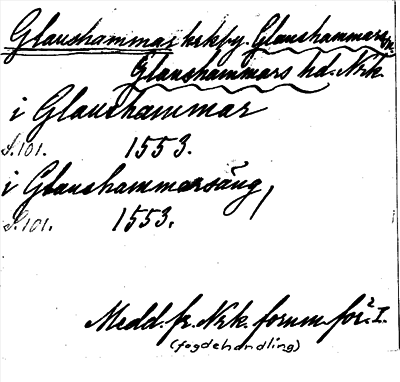 Glanshammar kskby. Glanshammars sn.
Glanshammars hd. Nrk.
i Glanshammar
S. 101. 1553.
i Glanshammarsäng,
S. 101. 1553.
Medd. fr. Nrk. fornm. för. I.
(fogdehandling)